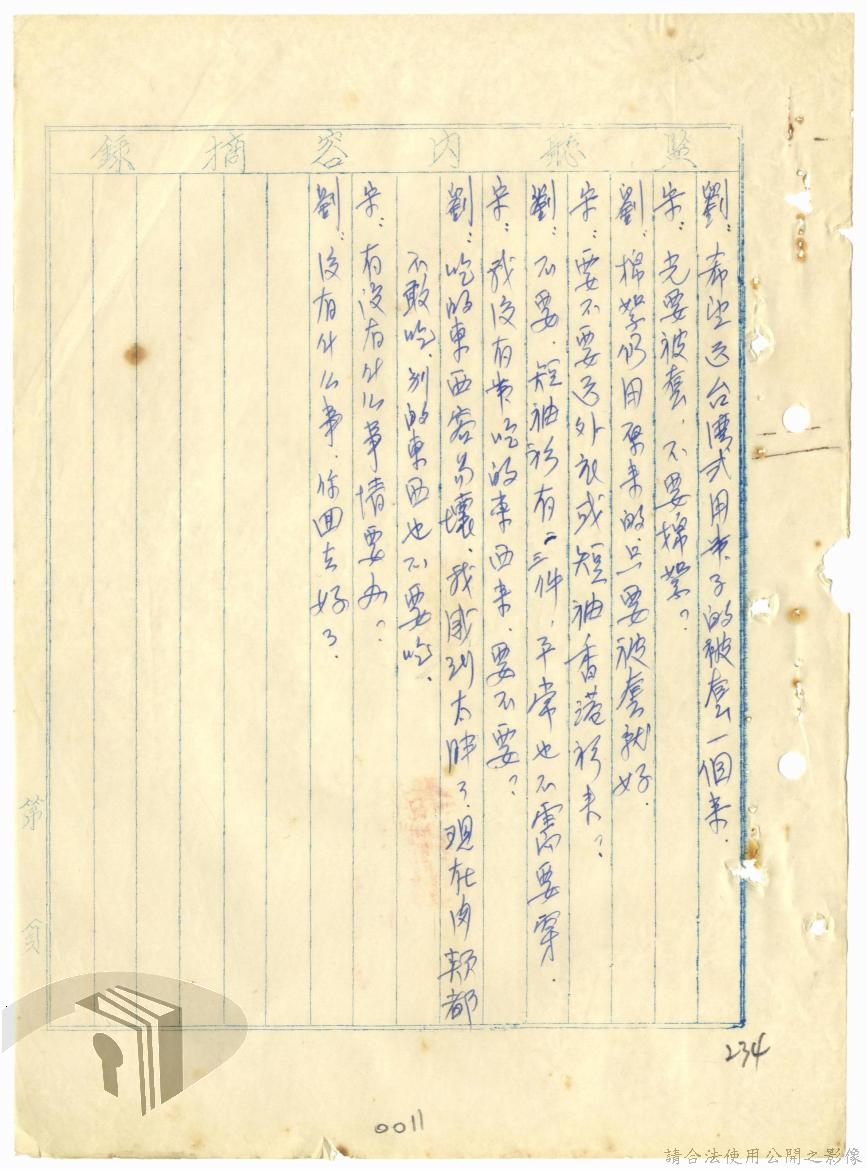 監聽內容摘錄
劉：希望送台灣式用帶子的被套一個來．
宋：光要被套，不要棉絮？
劉：棉絮仍用原來的只要被套就好．
宋：要不要送外衣或短袖香港衫來？
劉：不要．短袖衫有二三件，平常也不需要穿．
宋：我沒有帶吃的東西來．要不要？
劉：吃的東西容易壞．我感到太胖了．現在肉類都
不敢吃．別的東西也不要吃．
宋：有沒有什么事情要办？
劉：沒有什么事．你回去好了．
第 頁
234
0011
請合法使用公開之影像